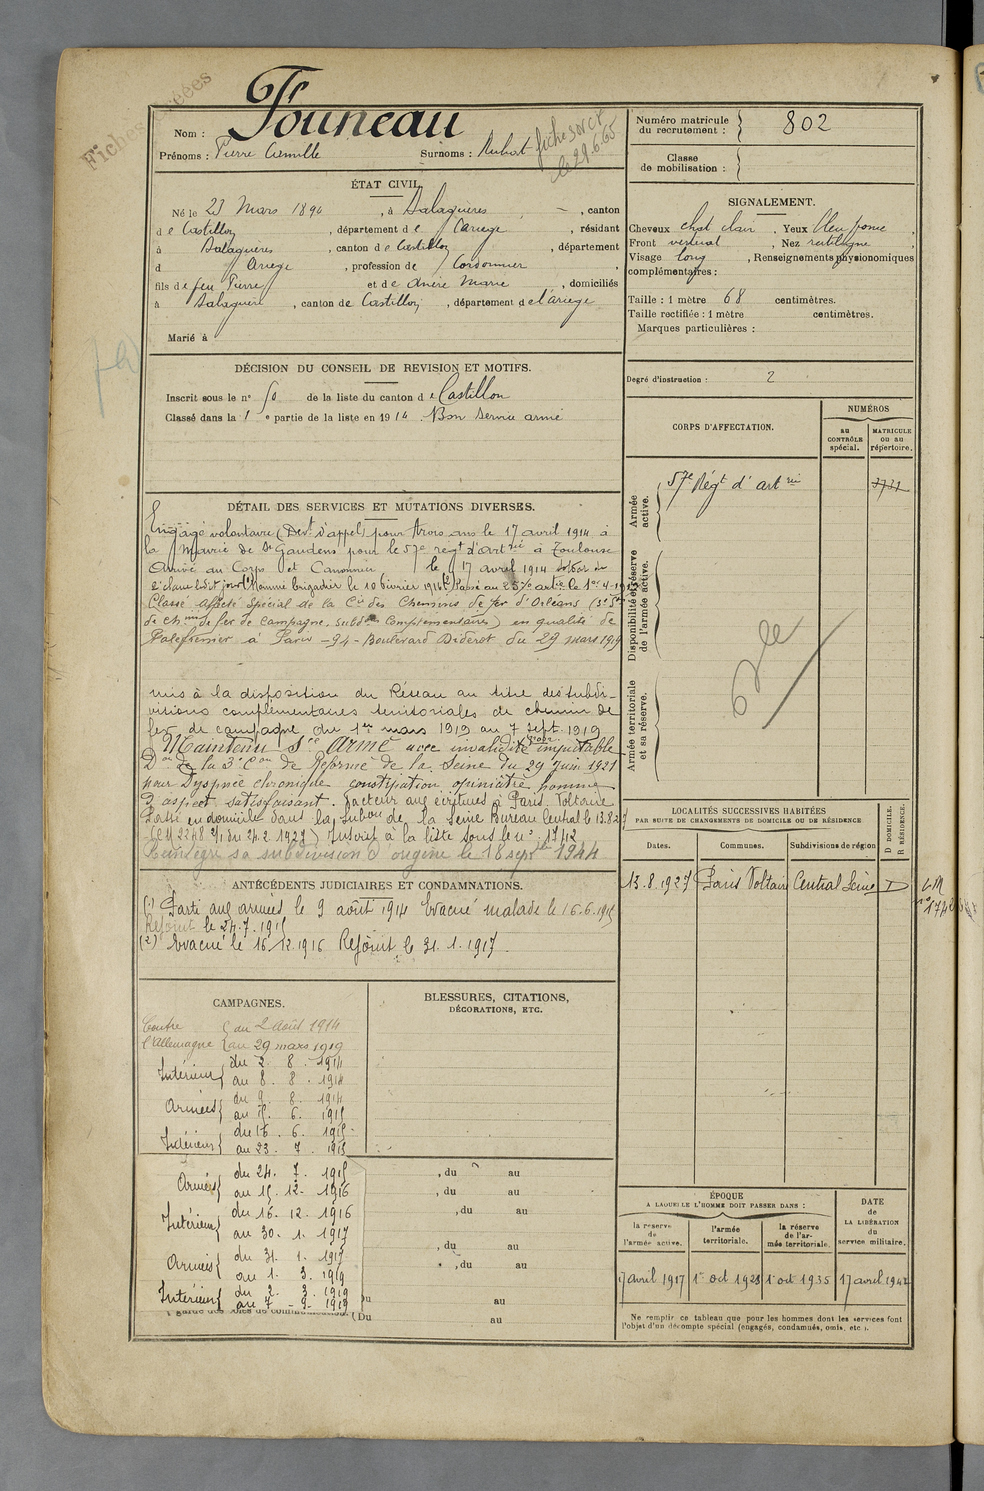 Fiches créées
Nom : Touneau
Prénoms : Pierre Camille Surnoms : Rubat
fiche sorct
le 29.6.65
Numéro matricule du recrutement : 802
Classe de mobilisation :
ÉTAT CIVIL.
Né le 23 Mars 1894, à Salaguères, canton
de Castillon, département de l'Ariège, résidant
à Salaguères, canton de Castillon, département
d Ariege, profession de Cordonnier
fils de feu Pierre et de Anère Marie, domiciliés
à Salaguère, canton de Castillon, département de l'ariege
Marié à
SIGNALEMENT.
Cheveux chat clair. Yeux bleu foncé,
Front vertical, Nez rectiligne,
Visage long, Renseignements physionomiques
complémentaires :
Taille : 1 mètre 68 centimètres.
Taille rectifiée : 1 mètre centimètres.
Marques particulières :
Degré d'instruction : 2
DÉCISION DU CONSEIL DE REVISION ET MOTIFS.
Inscrit sous le n° 50 de la liste du canton de Castillon
Classé dans la 1e partie de la liste en 1914. Bon service armé
CORPS D'AFFECTATION.
NUMÉROS
au CONTRÔLE spécial.
MATRICULE ou au répertoire.
Armée active.
57e Régt d'artrie
3731
Disponibilité et réserve de l'armée active.
Armée territoriale et sa réserve.
DÉTAIL DES SERVICES ET MUTATIONS DIVERSES.
Engagé volontaire (Devt d'appel) pour trois ans le 17 avril 1914 à
la Mairie de St Gaudens pour le 57e regt d'artrie à Toulouse
Arrivé au Corps et Canonnier le 17 avril 1914
Nommé brigadier le 10 février 1916 Passé au
Classé Affecté Spécial de la Cie des Chemins de fer d'Orléans
de chmin de fer de campagne, subdon Complémentaires) en qualité de
Palefrenier à Paris -94- Boulevard Diderot du 29 mars 1919
mis à la disposition du Réseau au titre des subdi-
visions complémentaires territoriales de chemin de
fer de campagne du 1er mars 1919 au 7 sept. 1919
Maintenu Sce Armé avec invalidité imputable
Don de la 3e Con de Réforme de la Seine du 29 juin 1921
pour Dyspnée chronique constipation opiniâtre homme
d'aspect satisfaisant. facteur aux écritures à Paris. Voltaire
Passé en domicile dans la subon de la Seine Bureau Central le 13.8.27
Inscrit à la liste sous le n° 1742
Réintégré sa subdivision d'origine le 18 septbre 1944
LOCALITÉS SUCCESSIVES HABITÉES
PAR SUITE DE CHANGEMENTS DE DOMICILE OU DE RÉSIDENCE
Dates. Communes. Subdivisions de région D DOMICILE. R RÉSIDENCE.
13.8.1927 Paris Voltaire Central Seine D
ANTÉCÉDENTS JUDICIAIRES ET CONDAMNATIONS.
(1) Parti aux armées le 9 août 1914 Evacué malade le 16.6.1915
Rejoint le 24.7.1915
(2) Evacué le 16.12.1916 Rejoint le 31.1.1917.
CAMPAGNES.
Contre l'Allemagne du 2 Août 1914
au 29 mars 1919
Intérieur du 2. 8. 1914
au 8. 8. 1914
Armées du 9. 8. 1914
au 15. 6. 1915
Intérieur du 16. 6. 1915
au 23. 7. 1915
Armées du 24. 7. 1915
au 15. 12. 1916
Intérieur du 16. 12. 1916
au 30. 1. 1917
Armées du 31. 1. 1917
au 1. 3. 1919
Intérieur du 2. 3. 1919
au 7 - 9 - 1919
BLESSURES, CITATIONS,
DÉCORATIONS, ETC.
, du au
, du au
, du au
, du au
, du au
Du au
(Du au
ÉPOQUE
A LAQUELLE L'HOMME DOIT PASSER DANS :
la réserve de l'armée active.
l'armée territoriale.
la réserve de l'armée territoriale.
DATE de LA LIBÉRATION du service militaire.
17 avril 1917 1er oct 1928 1er oct 1935 17 avril 1942
Ne remplir ce tableau que pour les hommes dont les services font
l'objet d'un décompte spécial (engagés, condamnés, omis, etc.).